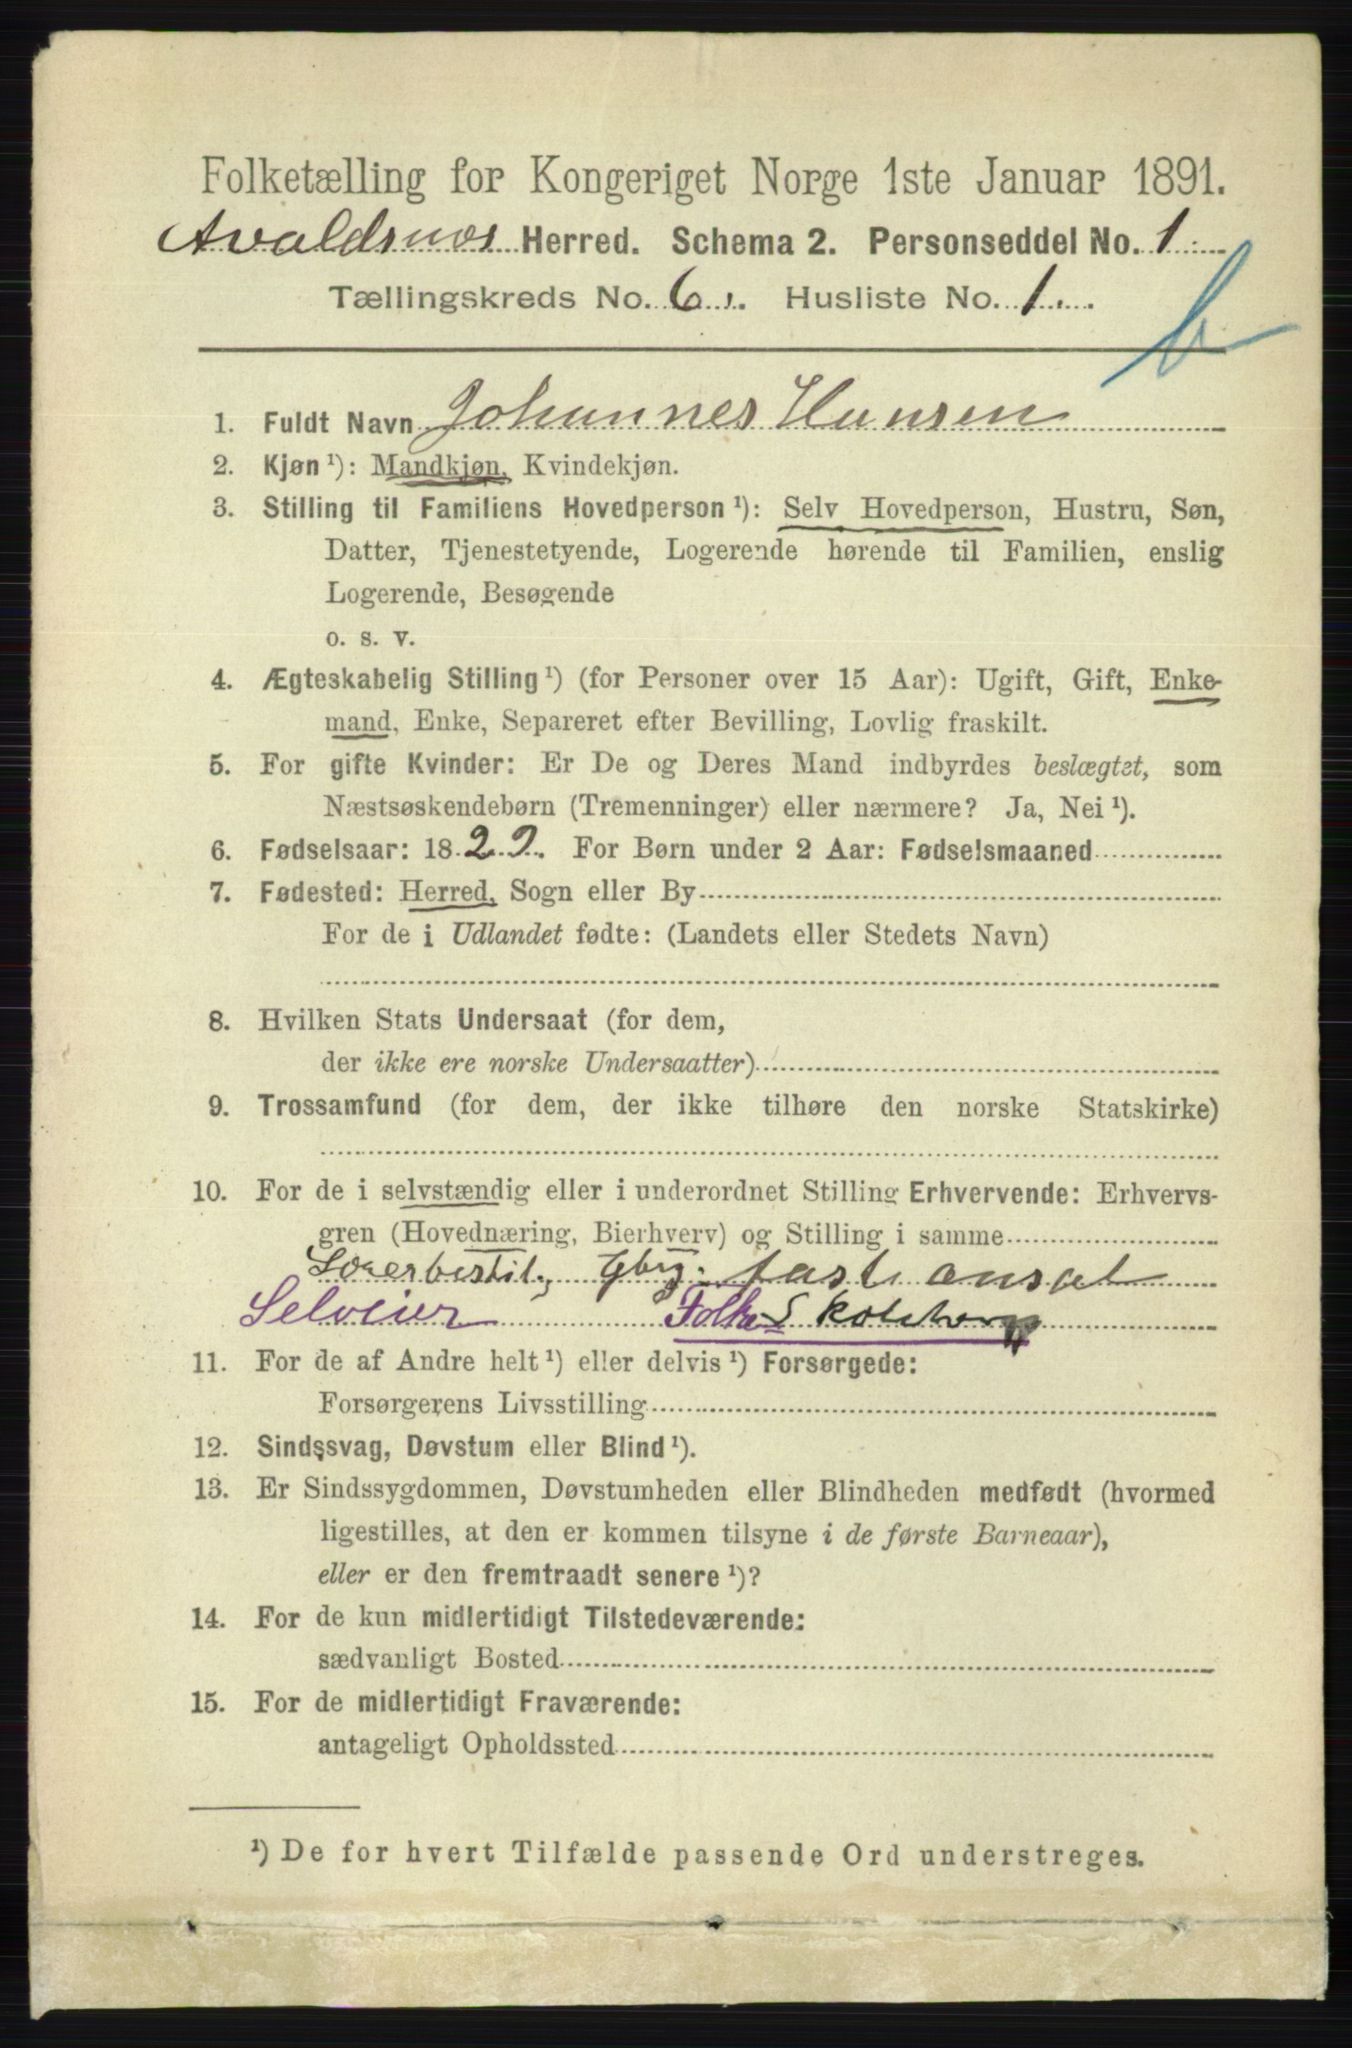 Folketælling for Kongeriget Norge 1ste Januar 1891.
Avaldsnes Herred. Schema 2. Personseddel No. 1
Tællingskreds No. 6. Husliste No. 1.
b
1. Fuldt Navn Johannes Hansen
2. Kjøn ¹): Mandkjøn, Kvindekjøn.
3. Stilling til Familiens Hovedperson ¹): Selv Hovedperson, Hustru, Søn,
Datter, Tjenestetyende, Logerende hørende til Familien, enslig
Logerende, Besøgende
o. s. v.
4. Ægteskabelig Stilling ¹) (for Personer over 15 Aar): Ugift, Gift, Enke-
mand, Enke, Separeret efter Bevilling, Lovlig fraskilt.
5. For gifte Kvinder: Er De og Deres Mand indbyrdes beslægtet, som
Næstsøskendebørn (Tremenninger) eller nærmere? Ja, Nei ¹).
6. Fødselsaar: 1829. For Børn under 2 Aar: Fødselsmaaned
7. Fødested: Herred, Sogn eller By
For de i Udlandet fødte: (Landets eller Stedets Navn)
8. Hvilken Stats Undersaat (for dem,
der ikke ere norske Undersaatter)
9. Trossamfund (for dem, der ikke tilhøre den norske Statskirke)
10. For de i selvstændig eller i underordnet Stilling Erhvervende: Erhvervs-
gren (Hovednæring, Bierhverv) og Stilling i samme
Gbrg. fast ansat
Selveier Folke
11. For de af Andre helt ¹) eller delvis ¹) Forsørgede:
Forsørgerens Livsstilling
12. Sindssvag, Døvstum eller Blind ¹).
13. Er Sindssygdommen, Døvstumheden eller Blindheden medfødt (hvormed
ligestilles, at den er kommen tilsyne i de første Barneaar),
eller er den fremtraadt senere ¹)?
14. For de kun midlertidigt Tilstedeværende:
sædvanligt Bosted
15. For de midlertidigt Fraværende:
antageligt Opholdssted
¹) De for hvert Tilfælde passende Ord understreges.